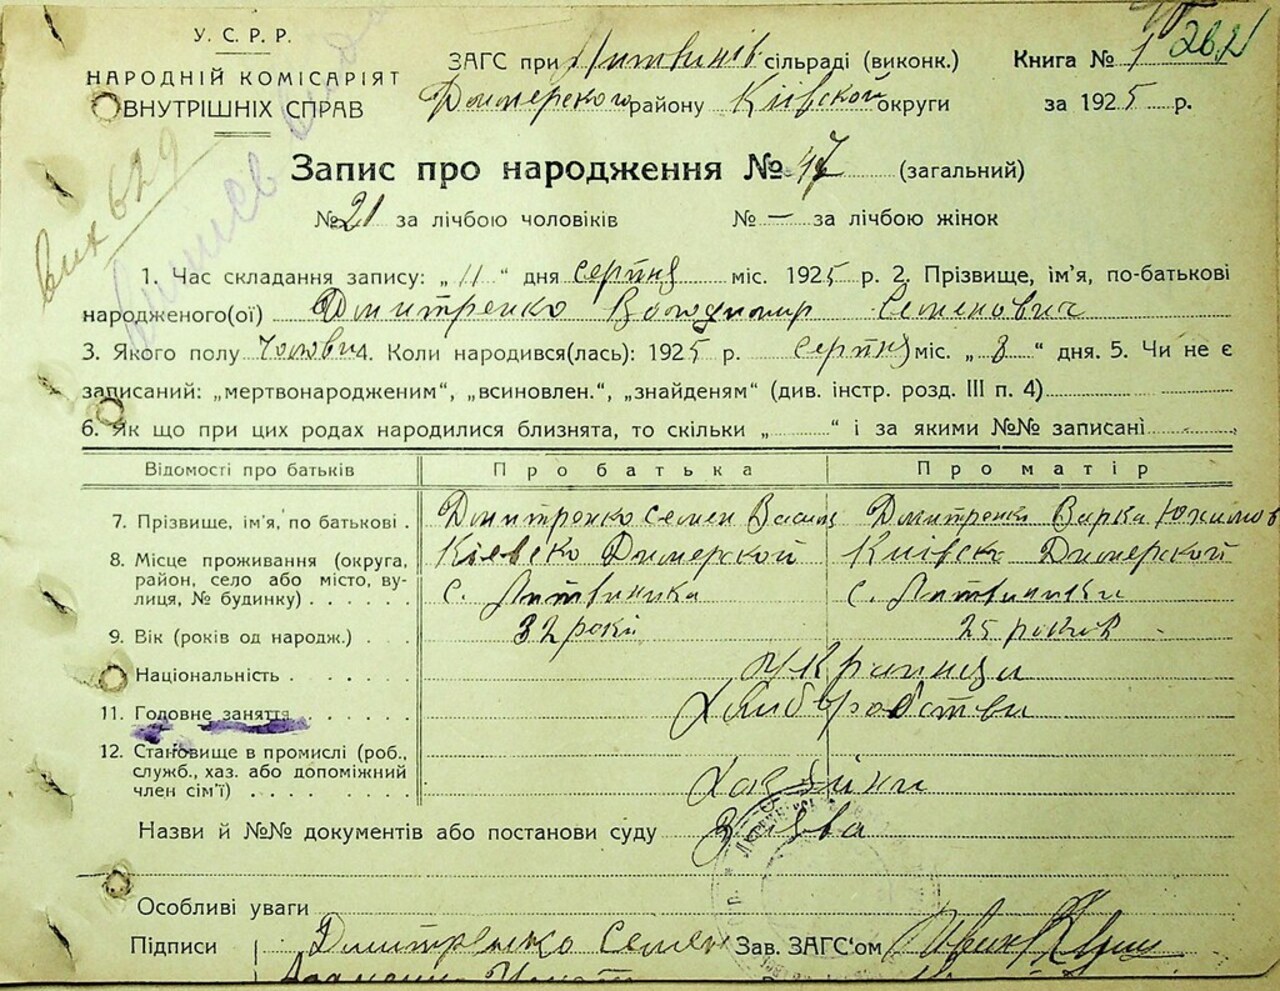 У. С. Р. Р.
НАРОДНІЙ КОМІСАРІЯТ
ВНУТРІШНІХ СПРАВ
ЗАГС при Литвинів сільраді (виконк.)
Димерского району Київской округи
Книга № 1
за 1925 р.
вих 629
Запис про народження № 47 (загальний)
№ 21 за лічбою чоловіків № — за лічбою жінок
1. Час складання запису: „ 11 “ дня серпня міс. 1925 р. 2. Прізвище, ім’я, по-батькові
народженого(ої) Дмитренко Володимир Семенович
3. Якого полу чолові 4. Коли народився(лась): 1925 р. серпня міс. „ 8 “ дня. 5. Чи не є
записаний: „мертвонародженим“, „всиновлен.“, „знайденям“ (див. інстр. розд. III п. 4)
6. Як що при цих родах народилися близнята, то скільки „ “ і за якими №№ записані
Відомості про батьків Про батька Про матір
7. Прізвище, ім’я, по батькові . Дмитренко Семен Васил Дмитренко Варка Юхимов
8. Місце проживання (округа, Киевско Димерской Київско Димерской
район, село або місто, ву-
лиця, № будинку) . . . . . . с. Литвиника с. Литвиники
9. Вік (років од народж.) . . . 32 роки 25 роков
Національність . . . . . . . Украинци
11. Головне заняття . . . . . . Хліборобства
12. Становище в промислі (роб.,
служб., хаз. або допоміжний Хазяіни
член сім’ї) . . . . . . . .
Назви й №№ документів або постанови суду Заява
Особливі уваги
Підписи Дмитренко Семен Зав. ЗАГС‘ом